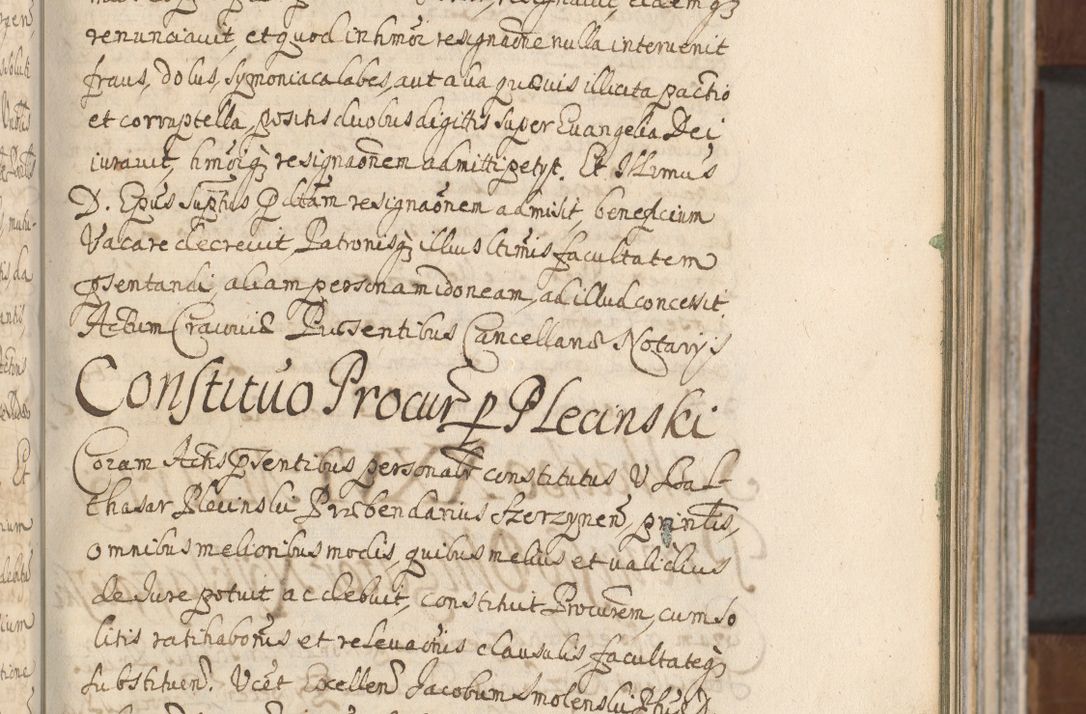 renunciavit, et quod in hmoi resignaone nulla intervenit
fraus, dolus, symoniaca labes, aut alia quævis illicita pactio
et corruptella, positis duobus digittis super Evangelia Dei
iuravit, hmoiq resignaonem admitti petyt. Et Illrmus
D. Epus Suptus pdtam resignaonem admisit, beneficium
Vacare decrevit, Patronisq illius ltimis facultatem
psentandi, aliam personam idoneam, ad illud concessit.
Actum Cracoviæ Præsentibus Cancellariæ Notarijs
Constituo Procur p Plecinski
Coram Actis psentibus personalr constitutus V Bal-
thasar Plecinski Præbendarius Szerzynen, printis,
omnibus melioribus modis, quibus melius et validius
de Jure potuit ac debuit, constituit Procurem, cum so
litis ratihabonis et relevaonis clausulis, facultateq
substituen. Vcet Excellen Jacobum Smolenski